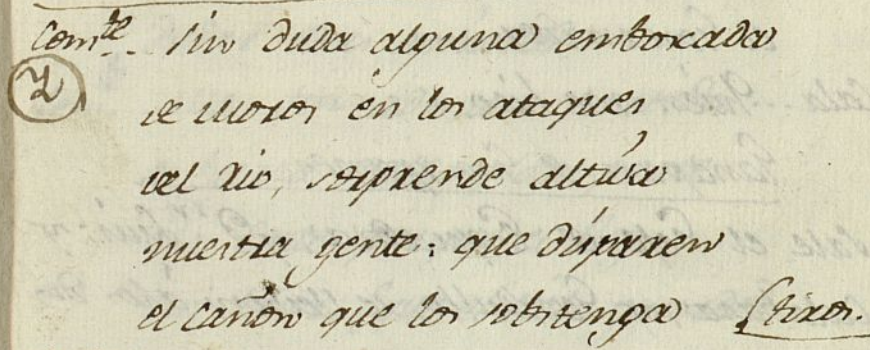 Comte.. Sin duda alguna emboxada
2
de moros en los ataques
del rio, sorprende altiva
nuestra gente: que disparen
el cañon que los sostenga (tiros.